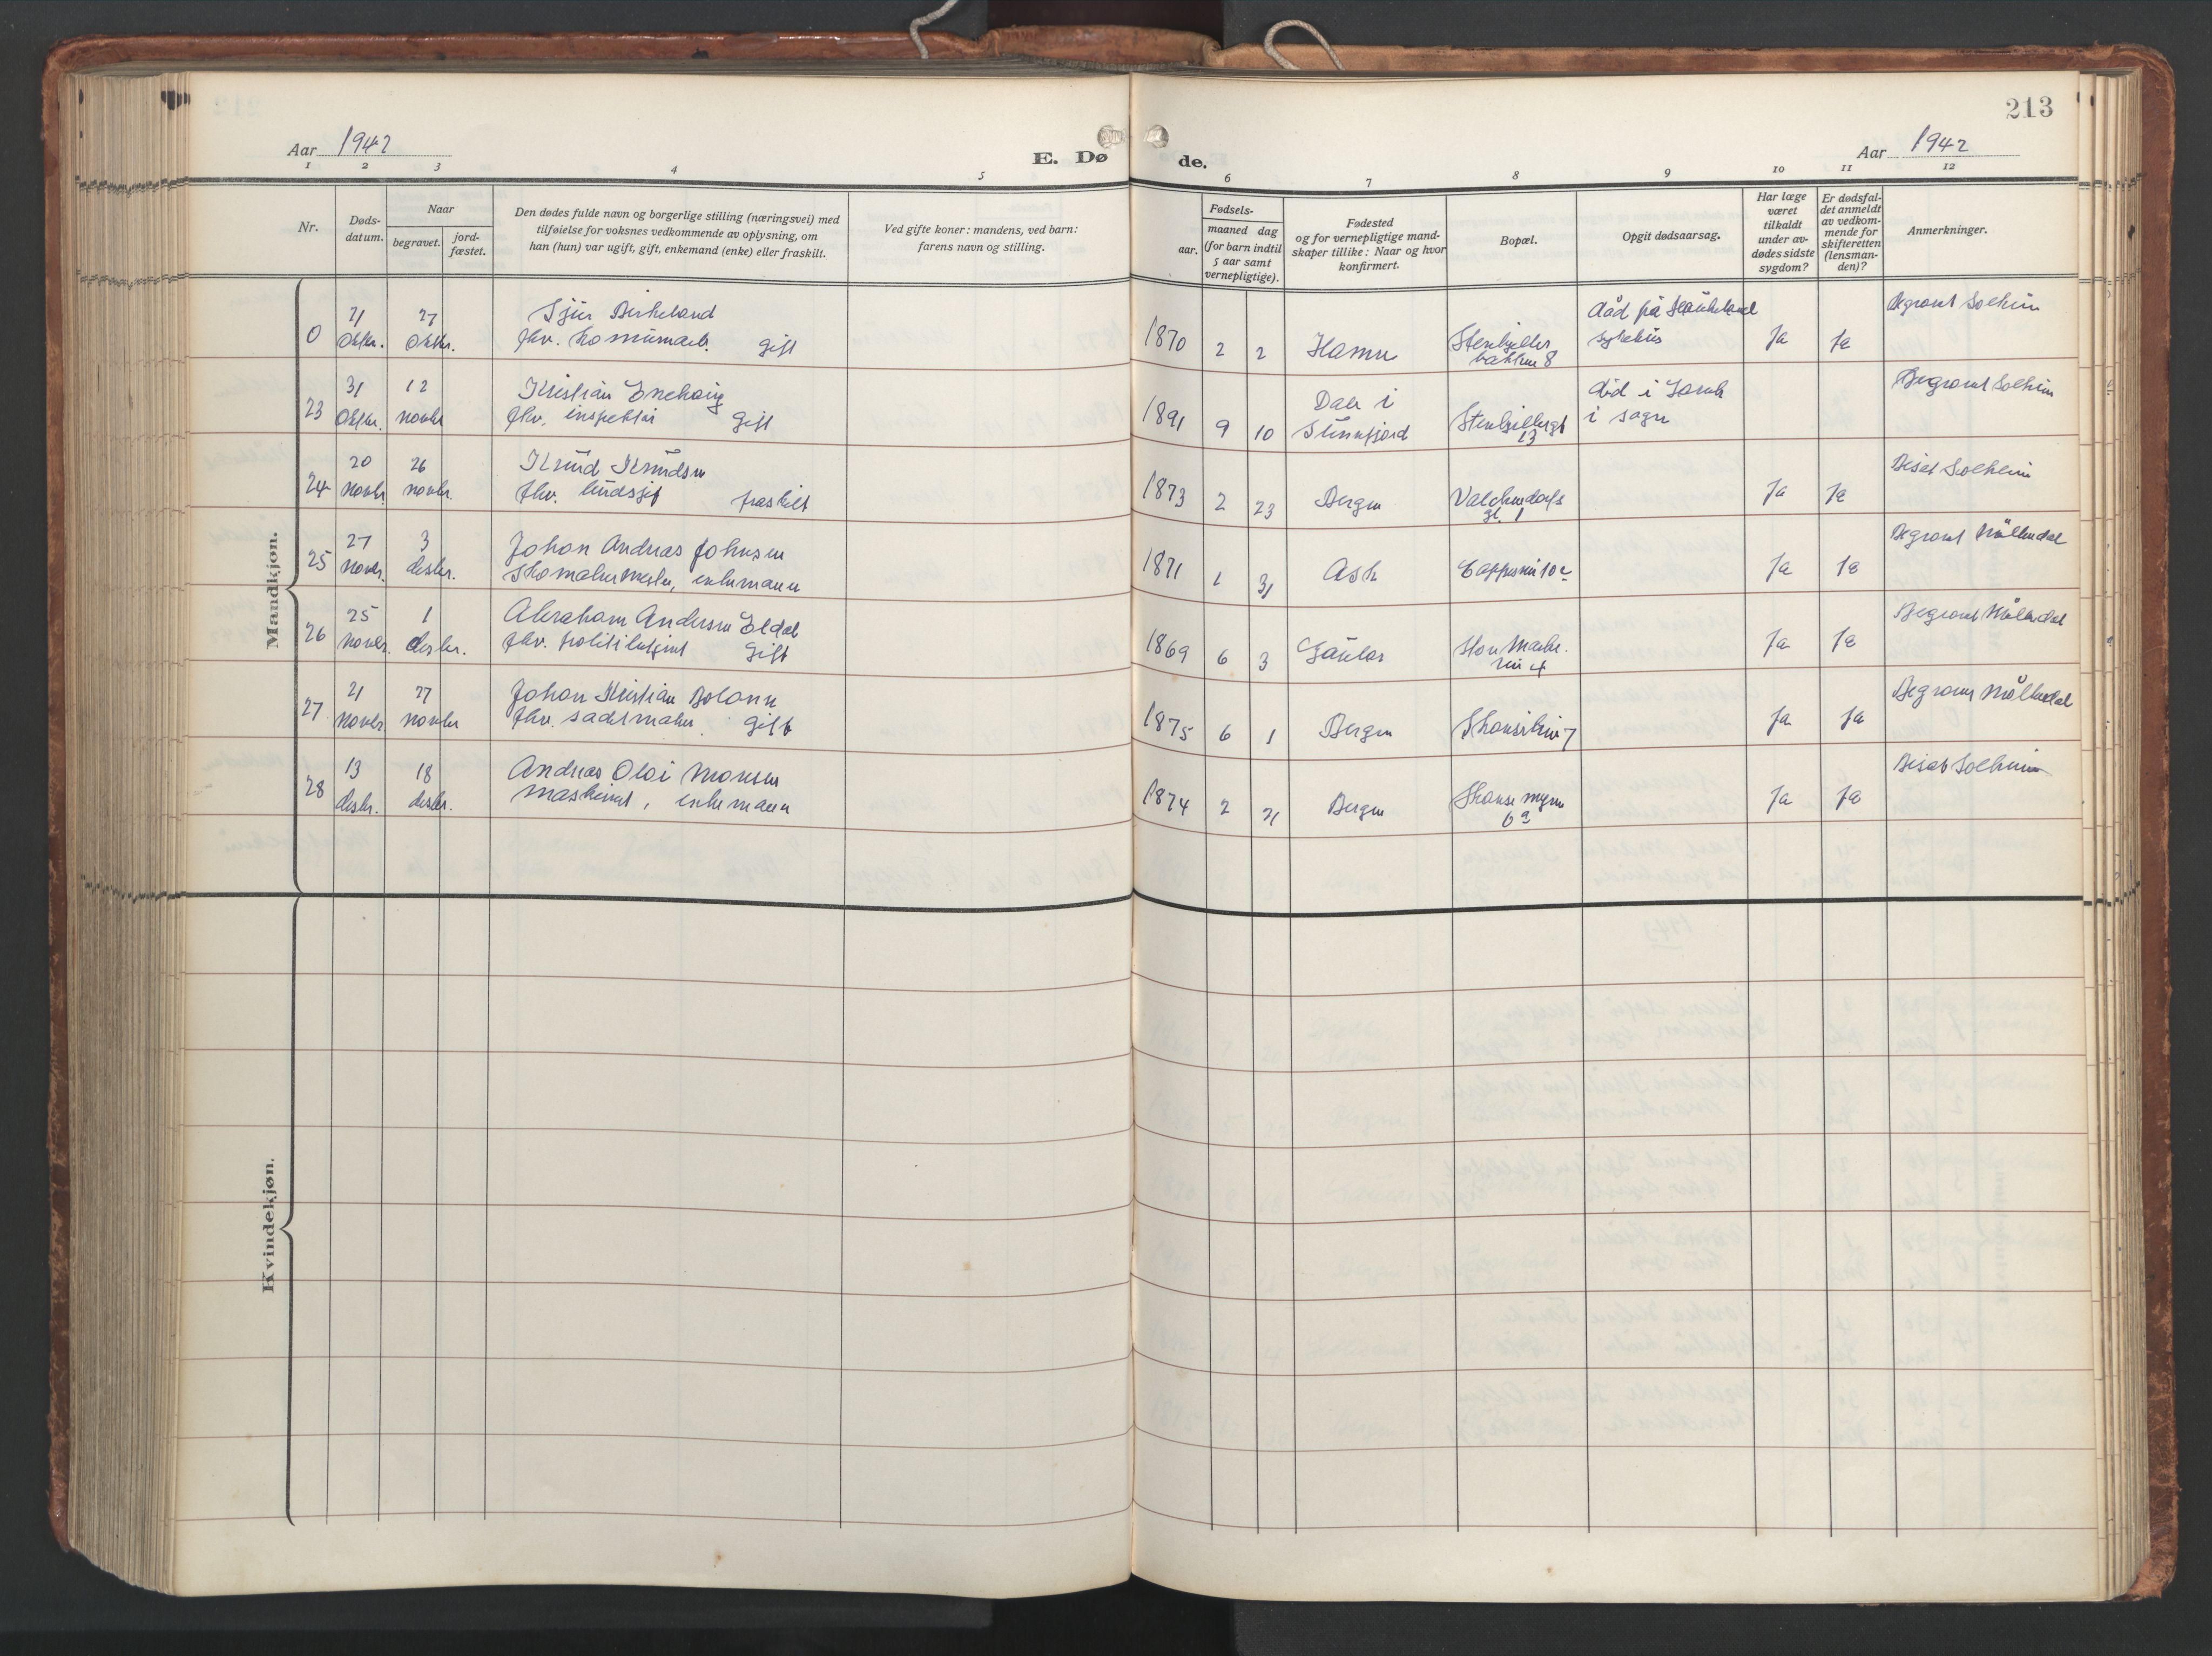 213
Aar 1942
E. Dø
de.
Aar 1942
1 2 3 4 5 6 7 8 9 10 11 12
Nr.
Døds-
datum.
Naar
begravet.
jord-
fæstet.
Den dødes fulde navn og borgerlige stilling (næringsvei) med
tilføielse for voksnes vedkommende av oplysning, om
han (hun) var ugift, gift, enkemand (enke) eller fraskilt.
Ved gifte koner: mandens, ved barn:
farens navn og stilling.
Fødsels-
aar.
maaned dag
(for barn indtil
5 aar samt
vernepligtige).
Fødested
og for vernepligtige mand-
skaper tillike: Naar og hvor
konfirmert.
Bopæl.
Opgit dødsaarsag.
Har læge
været
tilkaldt
under av-
dødes sidste
sygdom?
Er dødsfal-
det anmeldt
av vedkom-
mende for
skifteretten
(lensman-
den)?
Anmerkninger.
Mandkjøn.
0 21 27 Sjur Birkeland
Oktbr. Oktbr. fhv. gift
1870 2 2 Hamre
død på Haukeland
sykehus
Ja Ja
Begravet Solheim
31 12 Kristian
23 Oktbr. novbr fhv. inspektør Gift
1891 9 10 Dale i
Sunnfjord
13
død i
i Sogn
Begravet Solheim
20 26 Knud Knudsen
24 novbr novbr. fhv. budsjef fraskilt
1873 2 23 Bergen Valckendorfs
gt. 1
Ja Ja
Biset Solheim
27 3 Johan Andreas Johnsen
25 novbr. desbr. Skomakermester, enkemann
1871 1 31 Ask
Ja Ja
Begravet Møllendal
25 1 Abraham Andersen Eldal
26 novbr. desbr. fhv. politibetjent Gift
1869 6 3 Gaular
4
Ja Ja
Begravet Møllendal
21 27 Johan Kristian Bolann
27 novbr novbr fhv. sadelmaker Gift
1875 6 1 Bergen 7
Ja Ja
Begravet Møllendal
13 18 Andreas Olai Monsen
28 desbr. desbr. maskinist, enkemann
1874 2 21 Bergen Skansemyren
6 a
Ja Ja
Biset Solheim
Kvindekjøn.